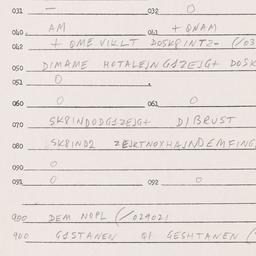 031 — 032 0
040 AM 041 + QNAM
042 + QME VIKLT DOSK8INTZ- (/03
050 DIMAME HOTALEJNG1ZEJG+ DOSK
051 0
060 0 061 0
070 SK8INDODG1ZEJG+ DJBRUST
080 SK8INDI ZEJKTNOXHAJNDEMFING
090 0
091 0 092 0
900 DEM NOPL (/029021
900 G1STANEN QI GESHTANEN (